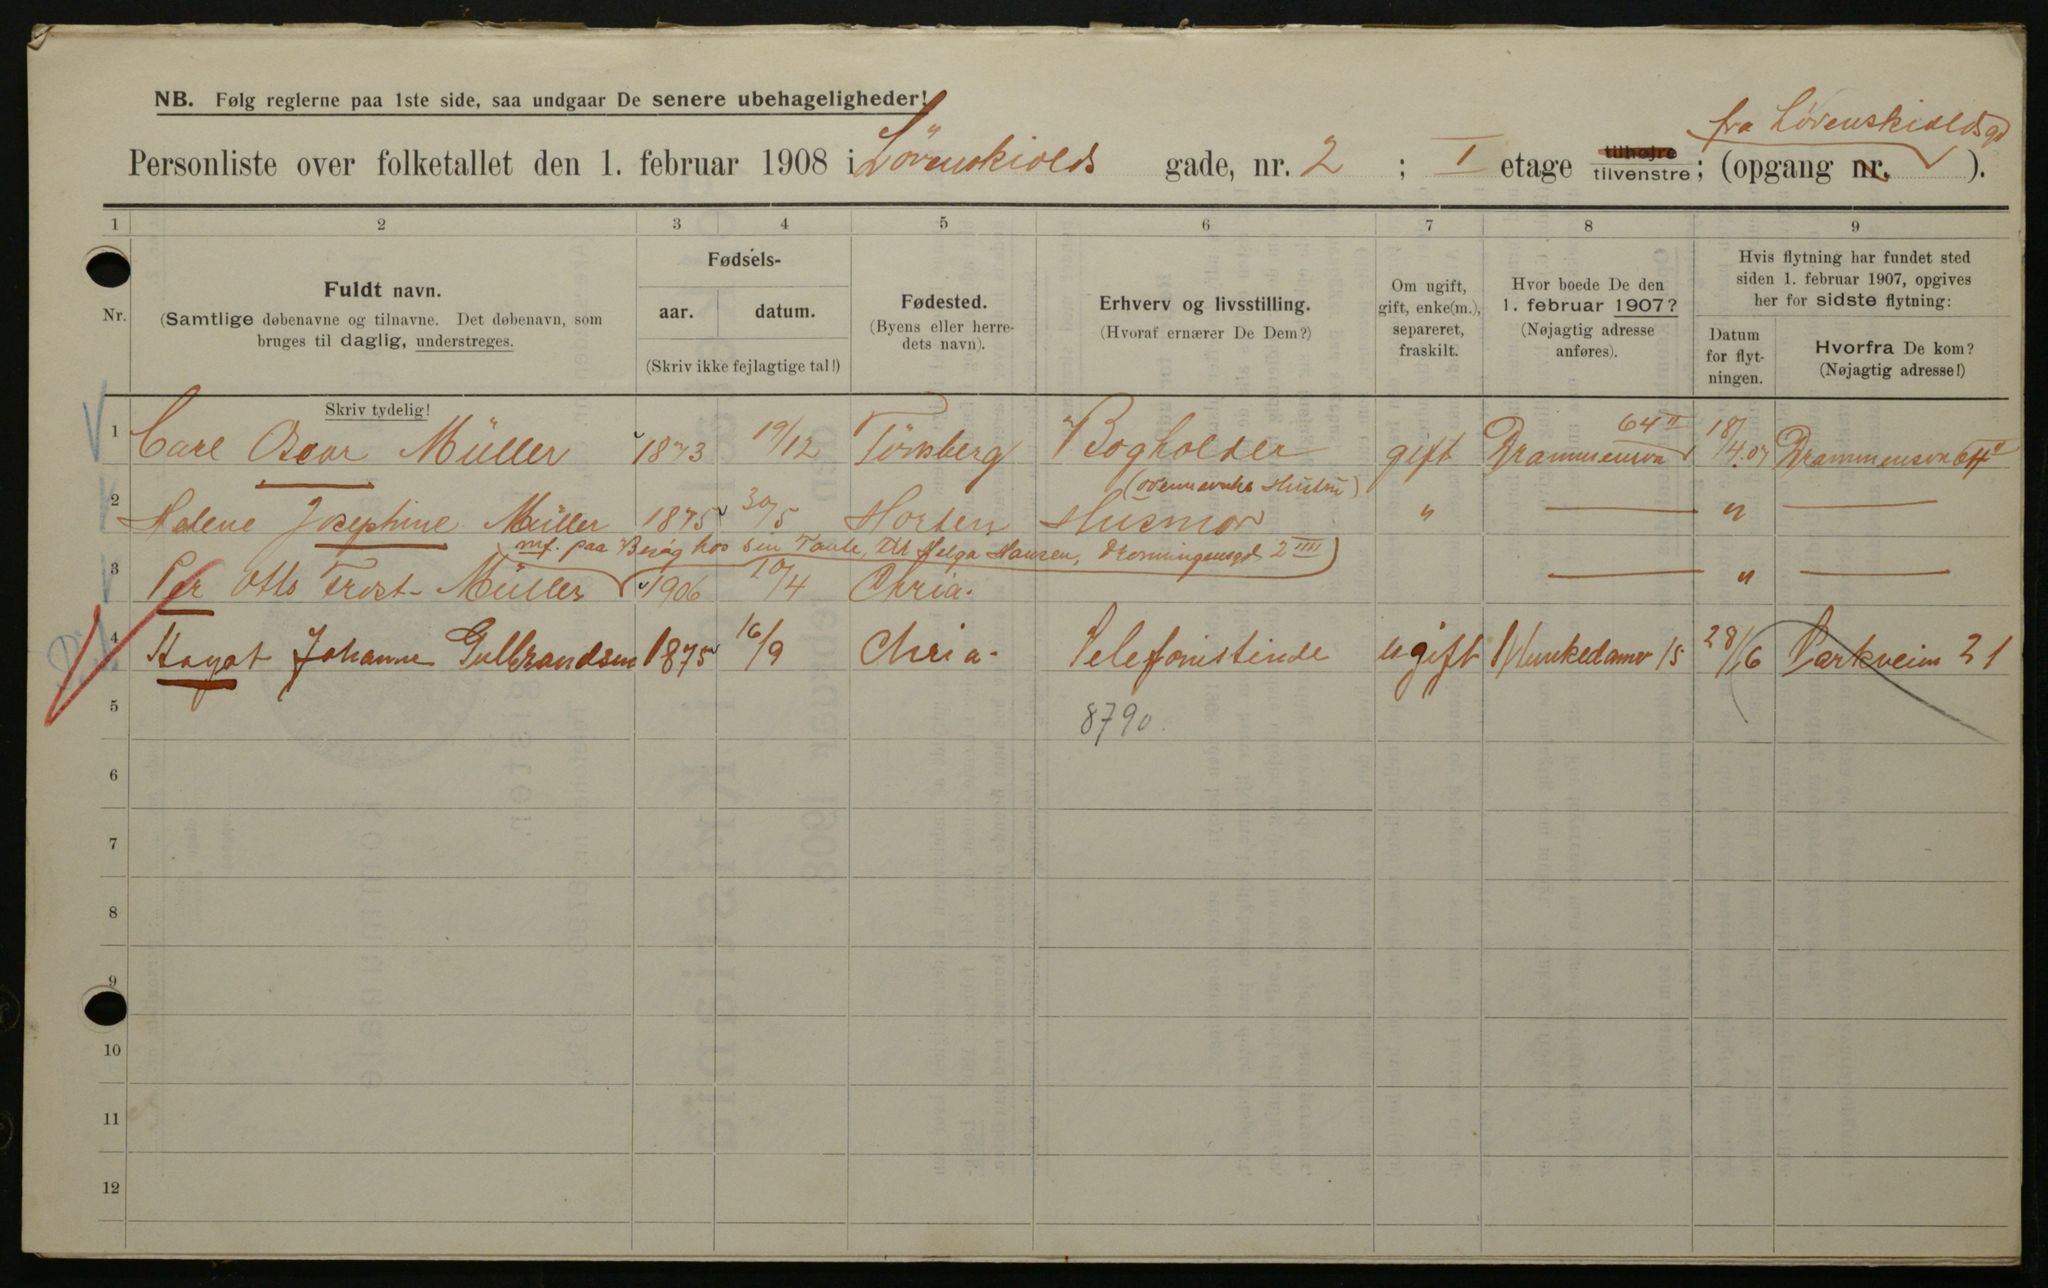 NB. Følg reglerne paa 1ste side, saa undgaar De senere ubehageligheder!
fra Lövenskioldsgd
Personliste over folketallet den 1. februar 1908 i Lövenskiolds gade, nr. 2 ; I etage tilhøjre tilvenstre; (opgang nr. ).
1 2 3 4 5 6 7 8 9
Nr.
Fuldt navn.
(Samtlige døbenavne og tilnavne. Det døbenavn, som
bruges til daglig, understreges.
Fødsels-
aar. datum.
(Skriv ikke fejlagtige tal!)
Fødested.
(Byens eller herre-
dets navn).
Erhverv og livsstilling.
(Hvoraf ernærer De Dem?)
Om ugift,
gift, enke(m.),
separeret,
fraskilt.
Hvor boede De den
1. februar 1907?
(Nøjagtig adresse
anføres).
Hvis flytning har fundet sted
siden 1. februar 1907, opgives
her for sidste flytning:
Datum
for flyt-
ningen.
Hvorfra De kom?
(Nøjagtig adresse!)
Skriv tydelig!
1 Carl Oscar Müller 1873 19/12 Tönsberg Bogholder gift Drammensvn 64 II 18/4.07 Drammensvn 64 II
(ovennævntes Hustru)
2 Helene Josephine Müller 1875 30/5 Horten Husmor " — " —
mf. paa Besøg hos sin Tante, Helga Hansen, Dronningensgd 2 IIII
3 Per Otto Frost-Müller 1906 10/4 Chria. — " —
4 Hagat Johanne Gulbrandsen 1875 16/9 Chria. Telefonistinde ugift Munkedamv 15 28/16 Parkveien 21
5 8790
6
7
8
9
10
11
12